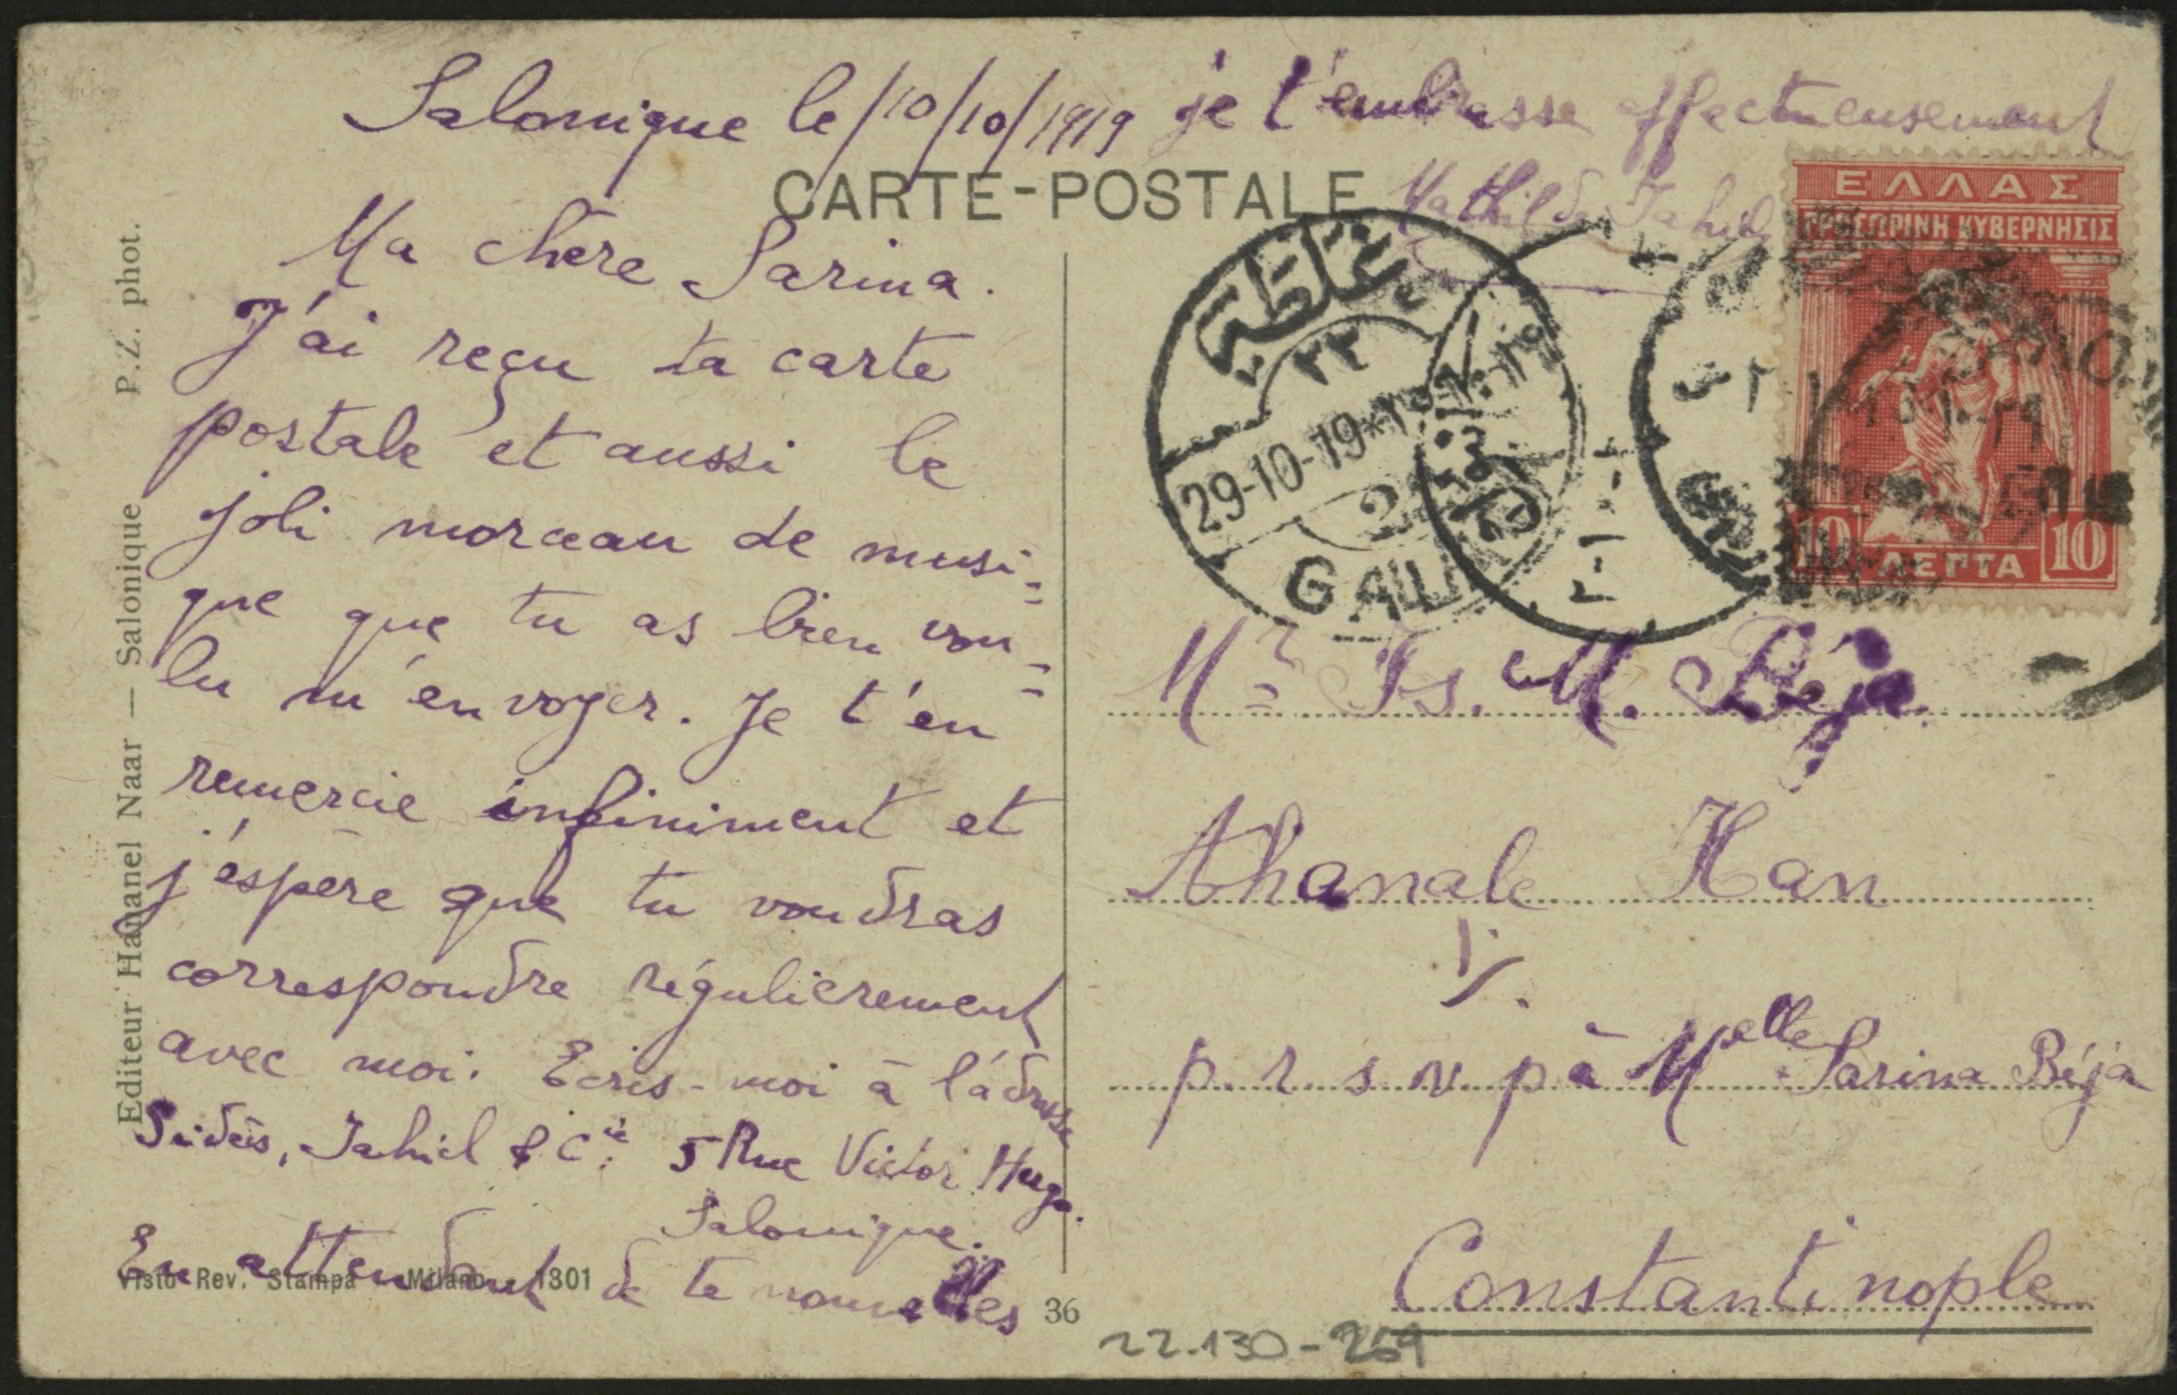 Salonique le /10/10/1919 je t'embrasse affectueusement
CARTE-POSTALE
Mathilde Jahiel
Ma chère Sarina.
J'ai reçu ta carte
postale et aussi le
joli morceau de musi=
que que tu as bien vou=
lu m'envoyer. Je t'en
remercie infiniment et
j'espère que tu voudras
correspondre régulièrement
avec moi. Ecris-moi à l'adresse
Jahiel & Cie 5 Rue Victor Hugo.
Salonique.
En attendant de te nouvelles
Editeur Hananel Naar — Salonique P.Z. phot.
Visto Rev. Stampa Milano 1301
36
ΕΛΛΑΣ
ΠΡΟΣΩΡΙΝΗ ΚΥΒΕΡΝΗΣΙΣ
10 ΛΕΠΤΑ 10
غلطه
٢٣
29-10-19
2
GALATA
Mr Is. M. Béja.
Ahanale Han
p. r. s. v. p à Melle Sarina Béja
Constantinople
22.130-269